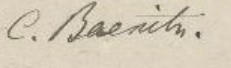 C. Baenitz.